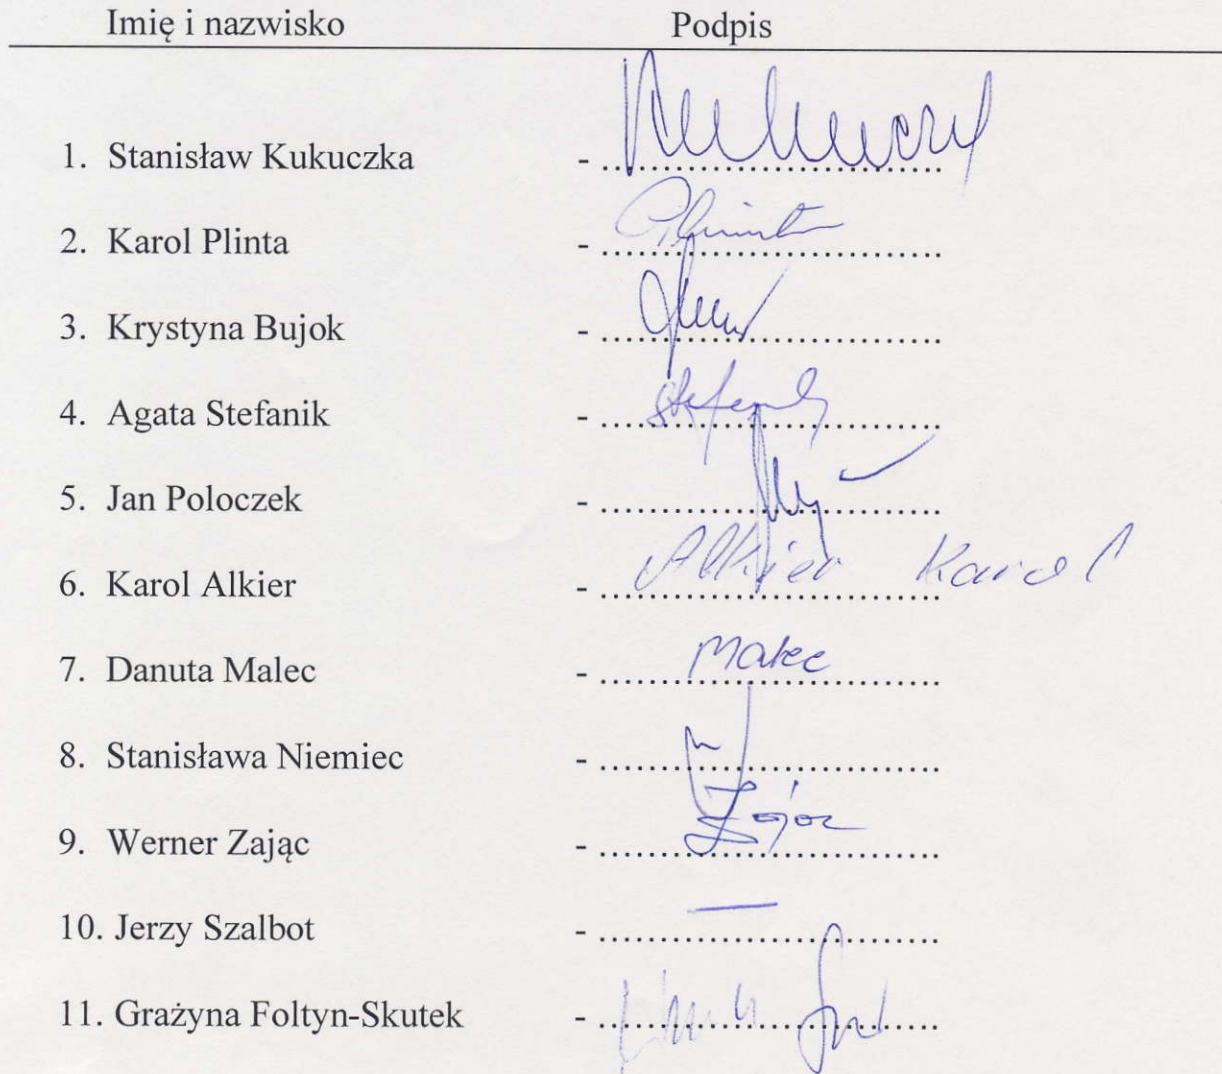 Imię i nazwisko Podpis
1. Stanisław Kukuczka - ............................
2. Karol Plinta - ............................ Plinta
3. Krystyna Bujok - ............................
4. Agata Stefanik - ............................ Stefanik
5. Jan Poloczek - ............................
6. Karol Alkier - ............................ Alkier Karol
7. Danuta Malec - ............................ Malec
8. Stanisława Niemiec - ............................
9. Werner Zając - ............................ Zając
10. Jerzy Szalbot - ............................ —
11. Grażyna Foltyn-Skutek - ............................